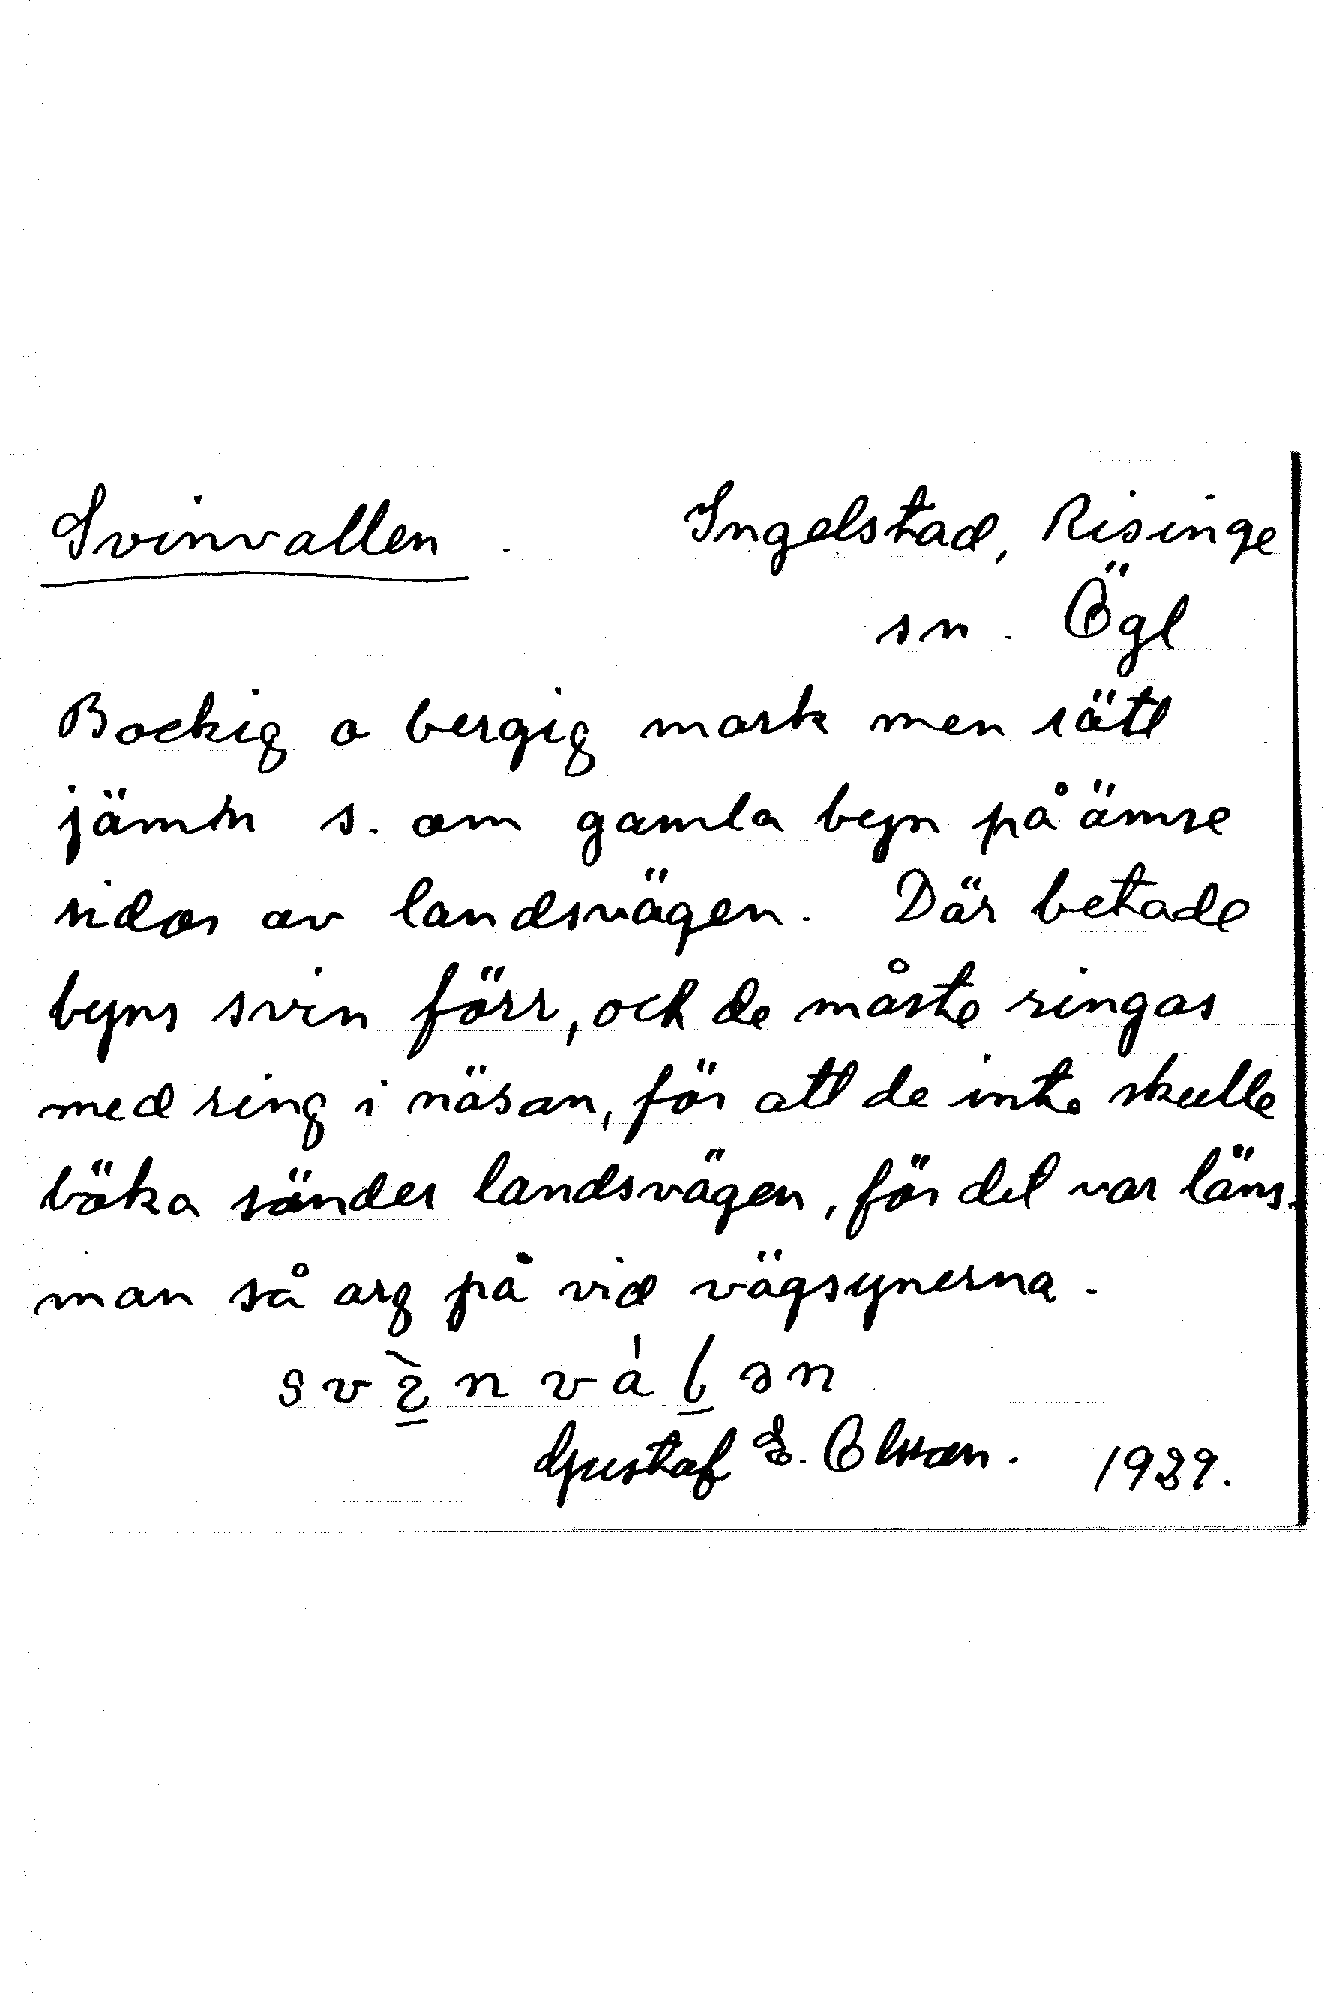 Svinvallen. Ingelstad, Risinge
sn. Ögl
Backig o bergig mark men rätt
jämn s. om gamla byn på ömse
sidor av landsvägen. Där betade
byns svin förr, och de måste ringas
med ring i näsan, för att de inte skulle
böka sönder landsvägen, för det var läns-
man så arg på vid vägsynerna.
Gustaf E. Olsson. 1929.